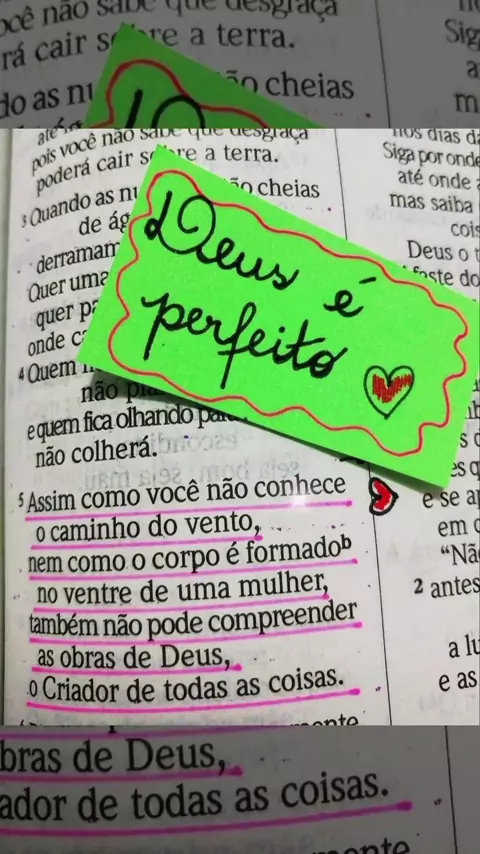 ocê não sabe que desgraça
rá cair sobre a terra.
do as nu
ão cheias
Sig
a
m
até
pois você não sabe que desgraça
poderá cair sobre a terra.
³ Quando as nu
ão cheias
de ág
derramam
Quer uma
quer pa
onde ca
⁴ Quem
não pla
e quem fica olhando para
não colherá.
Deus é
perfeito
⁵ Assim como você não conhece
o caminho do vento,
nem como o corpo é formadoᵇ
no ventre de uma mulher,
também não pode compreender
as obras de Deus,
o Criador de todas as coisas.
nos dias da
Siga por onde
até onde a
mas saiba
cois
Deus o t
faste do
es q
e se ap
em c
“Nã
2 antes
a lu
e as
mente
bras de Deus,
ador de todas as coisas.